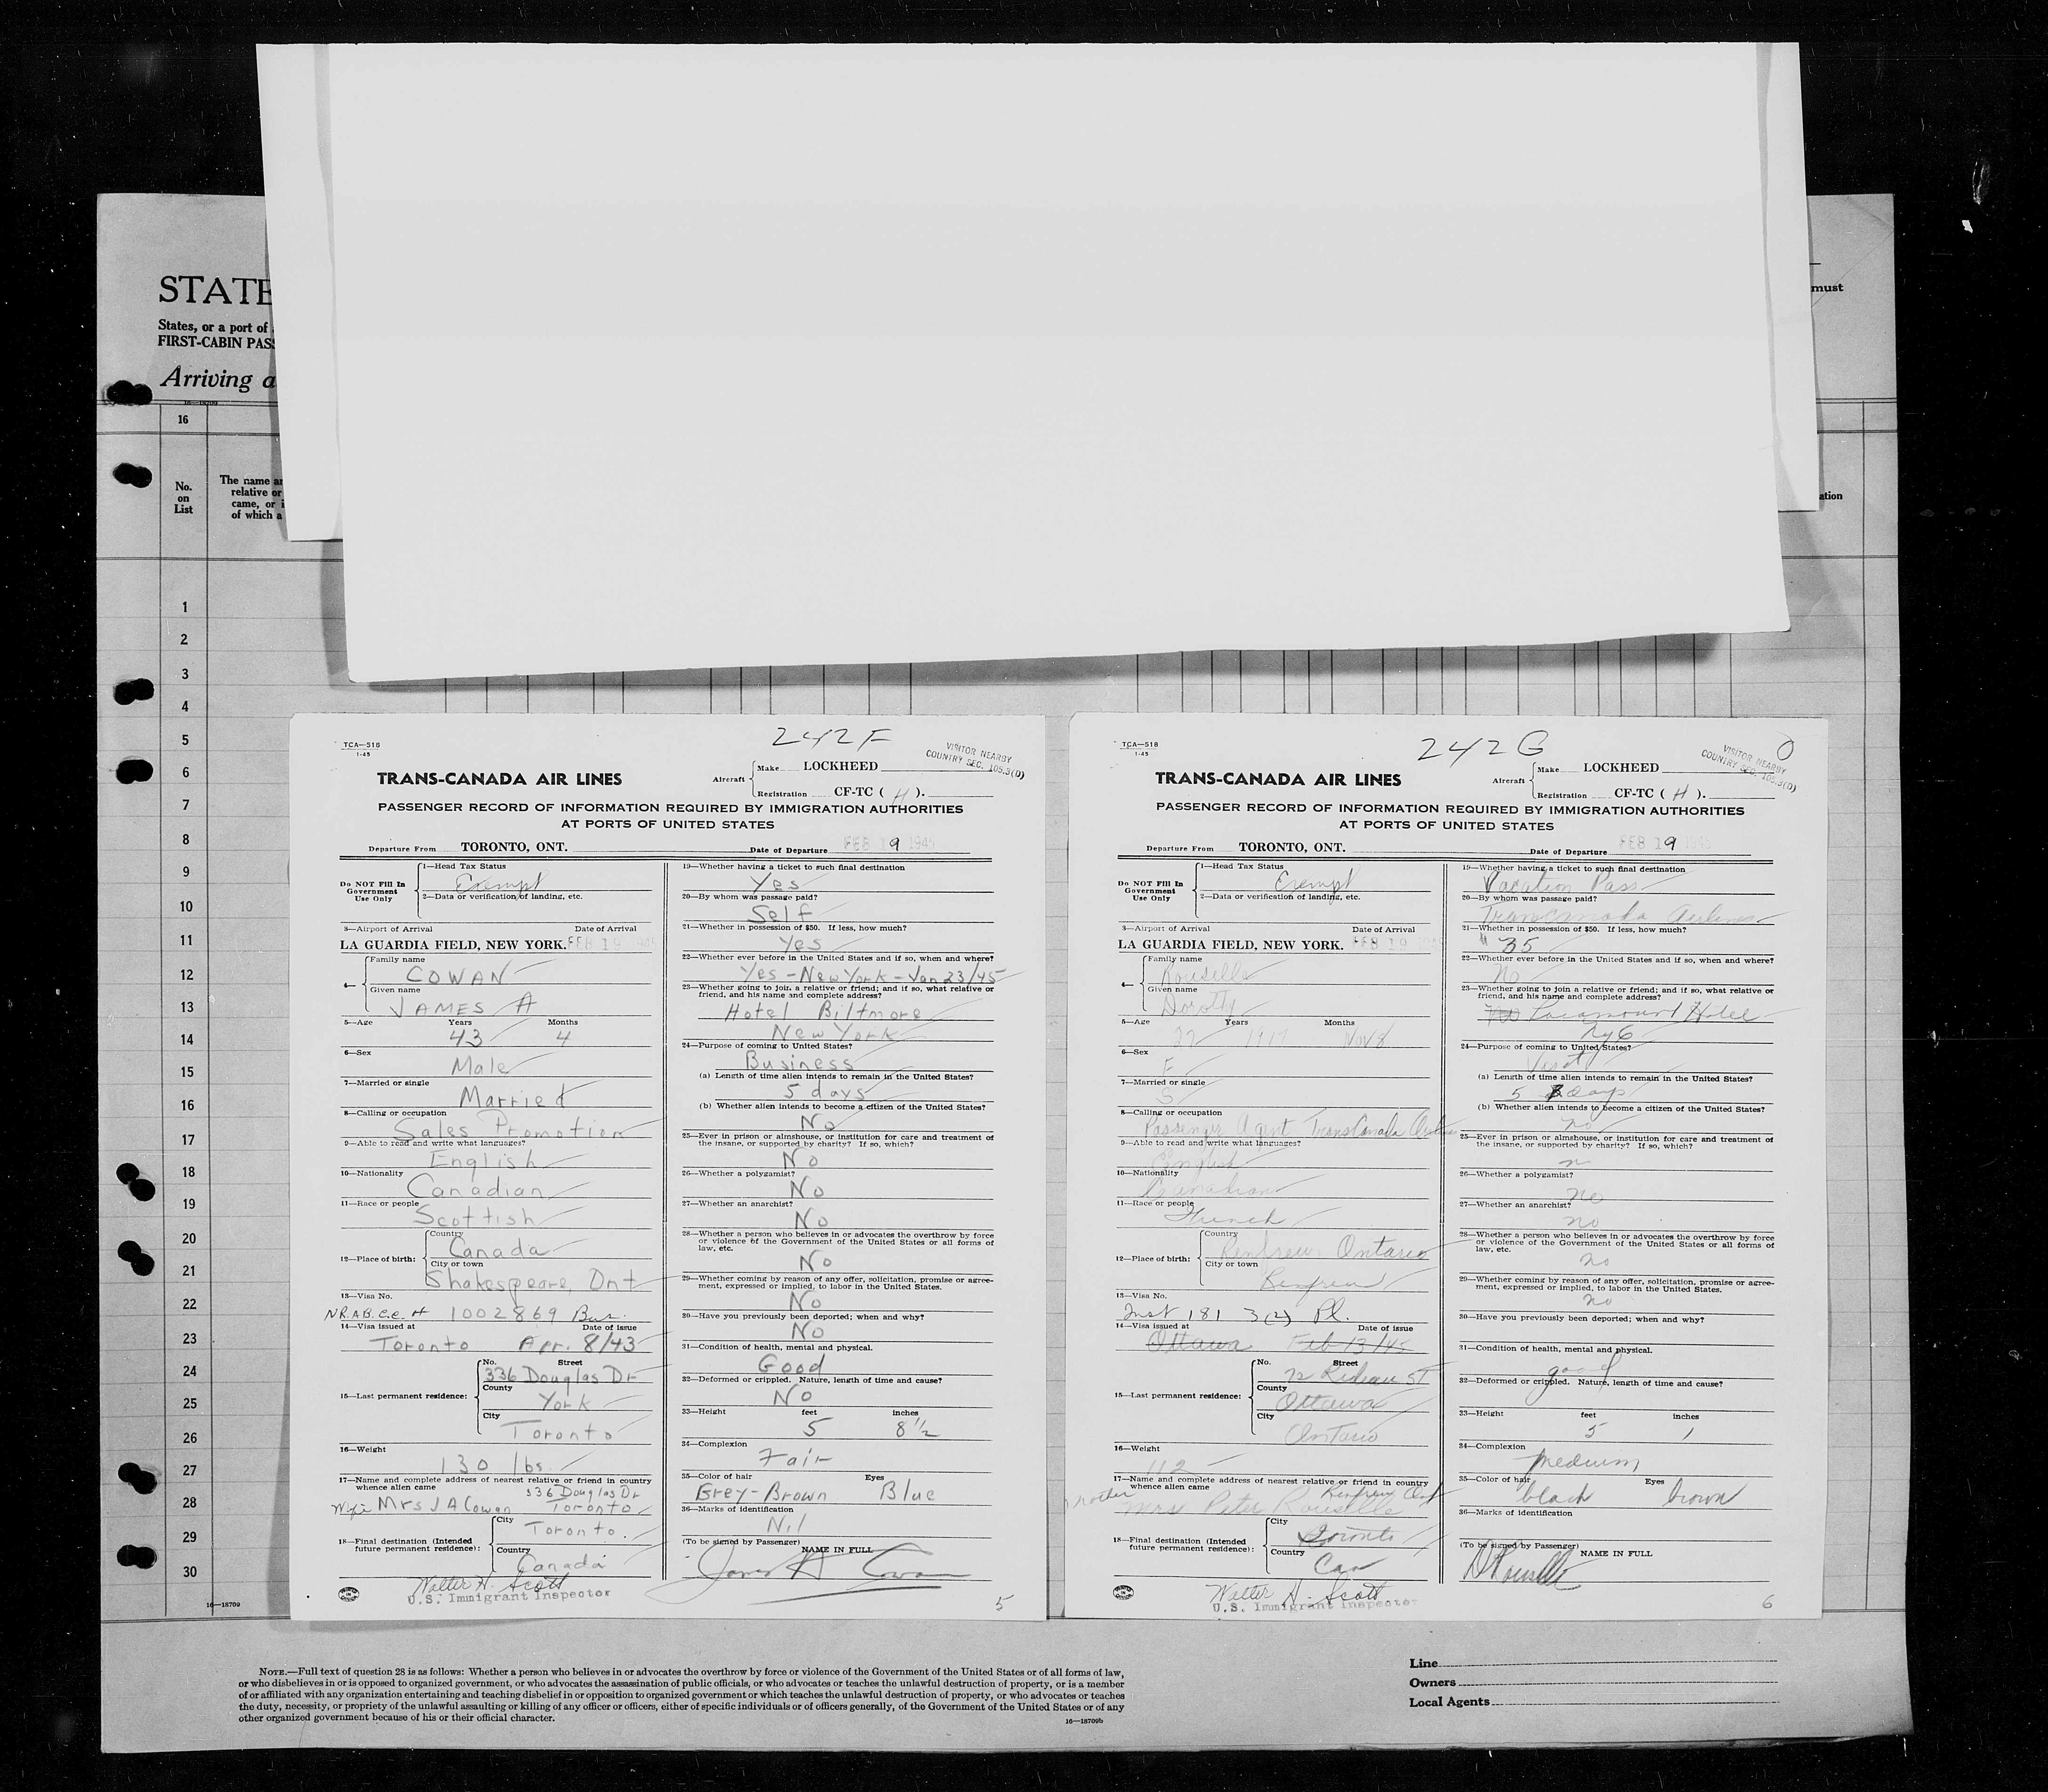 STATE
States, or a port of
FIRST-CABIN PAS
Arriving a
must
16—18709
16
No.
on
List
The name a
relative or
came, or i
of which a
ation
1
2
3
4
5
6
7
8
9
10
11
12
13
14
15
16
17
18
19
20
21
22
23
24
25
26
27
28
29
30
16—18709
242F
TCA—518
1-45
VISITOR NEARBY
COUNTRY SEC. 105.3(D)
TRANS-CANADA AIR LINES
Aircraft
Make LOCKHEED
Registration CF-TC ( H ).
PASSENGER RECORD OF INFORMATION REQUIRED BY IMMIGRATION AUTHORITIES
AT PORTS OF UNITED STATES
Departure From TORONTO, ONT. Date of Departure FEB 19 1945
Do NOT Fill In
Government
Use Only
1—Head Tax Status
Exempt
2—Data or verification of landing, etc.
3—Airport of Arrival Date of Arrival
LA GUARDIA FIELD, NEW YORK. FEB 19 1945
4—
Family name
COWAN
Given name
JAMES A
5—Age Years Months
43 4
6—Sex
Male
7—Married or single
Married
8—Calling or occupation
Sales Promotion
9—Able to read and write what languages?
English
10—Nationality
Canadian
11—Race or people
Scottish
12—Place of birth:
Country
Canada
City or town
Shakespeare, Ont
13—Visa No.
N.R.A.B.C.C. # 1002869 Bus
14—Visa issued at Date of issue
Toronto Apr. 8/43
15—Last permanent residence:
No. Street
336 Douglas Dr
County
York
City
Toronto
16—Weight
130 lbs
17—Name and complete address of nearest relative or friend in country
whence alien came 336 Douglas Dr
Wife Mrs J A Cowan Toronto
18—Final destination (Intended
future permanent residence):
City
Toronto.
Country
Canada
Walter H. Scott
U.S. Immigrant Inspector
19—Whether having a ticket to such final destination
Yes
20—By whom was passage paid?
Self
21—Whether in possession of $50. If less, how much?
Yes
22—Whether ever before in the United States and if so, when and where?
Yes - New York - Jan 23/45
23—Whether going to join a relative or friend; and if so, what relative or
friend, and his name and complete address?
Hotel Biltmore
New York
24—Purpose of coming to United States?
Business
(a) Length of time alien intends to remain in the United States?
5 days
(b) Whether alien intends to become a citizen of the United States?
No
25—Ever in prison or almshouse, or institution for care and treatment of
the insane, or supported by charity? If so, which?
No
26—Whether a polygamist?
No
27—Whether an anarchist?
No
28—Whether a person who believes in or advocates the overthrow by force
or violence of the Government of the United States or all forms of
law, etc.
No
29—Whether coming by reason of any offer, solicitation, promise or agree-
ment, expressed or implied, to labor in the United States.
No
30—Have you previously been deported; when and why?
No
31—Condition of health, mental and physical.
Good
32—Deformed or crippled. Nature, length of time and cause?
No
33—Height feet inches
5 8½
34—Complexion
Fair
35—Color of hair Eyes
Grey-Brown Blue
36—Marks of identification
Nil
(To be signed by Passenger) NAME IN FULL
James A Cowan
5
242G
0
TCA—518
1-45
VISITOR NEARBY
COUNTRY SEC. 105.3(D)
TRANS-CANADA AIR LINES
Aircraft
Make LOCKHEED
Registration CF-TC ( H ).
PASSENGER RECORD OF INFORMATION REQUIRED BY IMMIGRATION AUTHORITIES
AT PORTS OF UNITED STATES
Departure From TORONTO, ONT. Date of Departure FEB 19 1945
Do NOT Fill In
Government
Use Only
1—Head Tax Status
Exempt
2—Data or verification of landing, etc.
3—Airport of Arrival Date of Arrival
LA GUARDIA FIELD, NEW YORK. FEB 19 1945
4—
Family name
Rouselle
Given name
Dorothy
5—Age Years Months
27 1917 Nov 8
6—Sex
F
7—Married or single
S
8—Calling or occupation
Passenger Agent TransCanada Airlines
9—Able to read and write what languages?
English
10—Nationality
Canadian
11—Race or people
French
12—Place of birth:
Country
Renfrew Ontario
City or town
Renfrew
13—Visa No.
Inst 181 3(2) Pl.
14—Visa issued at Date of issue
Ottawa Feb 13/45
15—Last permanent residence:
No. Street
72 Rideau ST
County
Ottawa
City
Ontario
16—Weight
112
17—Name and complete address of nearest relative or friend in country
whence alien came Renfrew Ont
mother Mrs Peter Rouselle
18—Final destination (Intended
future permanent residence):
City
Toronto
Country
Can
Walter H. Scott
U.S. Immigrant Inspector
19—Whether having a ticket to such final destination
Vacation Pass
20—By whom was passage paid?
Transcanada Airlines
21—Whether in possession of $50. If less, how much?
35
22—Whether ever before in the United States and if so, when and where?
No
23—Whether going to join a relative or friend; and if so, what relative or
friend, and his name and complete address?
No Paramount Hotel
NYC
24—Purpose of coming to United States?
Visit
(a) Length of time alien intends to remain in the United States?
5 days
(b) Whether alien intends to become a citizen of the United States?
no
25—Ever in prison or almshouse, or institution for care and treatment of
the insane, or supported by charity? If so, which?
n
26—Whether a polygamist?
no
27—Whether an anarchist?
no
28—Whether a person who believes in or advocates the overthrow by force
or violence of the Government of the United States or all forms of
law, etc.
no
29—Whether coming by reason of any offer, solicitation, promise or agree-
ment, expressed or implied, to labor in the United States.
no
30—Have you previously been deported; when and why?
31—Condition of health, mental and physical.
good
32—Deformed or crippled. Nature, length of time and cause?
33—Height feet inches
5 1
34—Complexion
medium
35—Color of hair Eyes
black brown
36—Marks of identification
(To be signed by Passenger) NAME IN FULL
D Rouselle
6
NOTE.—Full text of question 28 is as follows: Whether a person who believes in or advocates the overthrow by force or violence of the Government of the United States or of all forms of law,
or who disbelieves in or is opposed to organized government, or who advocates the assassination of public officials, or who advocates or teaches the unlawful destruction of property, or is a member
of or affiliated with any organization entertaining and teaching disbelief in or opposition to organized government or which teaches the unlawful destruction of property, or who advocates or teaches
the duty, necessity, or propriety of the unlawful assaulting or killing of any officer or officers, either of specific individuals or of officers generally, of the Government of the United States or of any
other organized government because of his or their official character.
16—18709b
Line
Owners
Local Agents